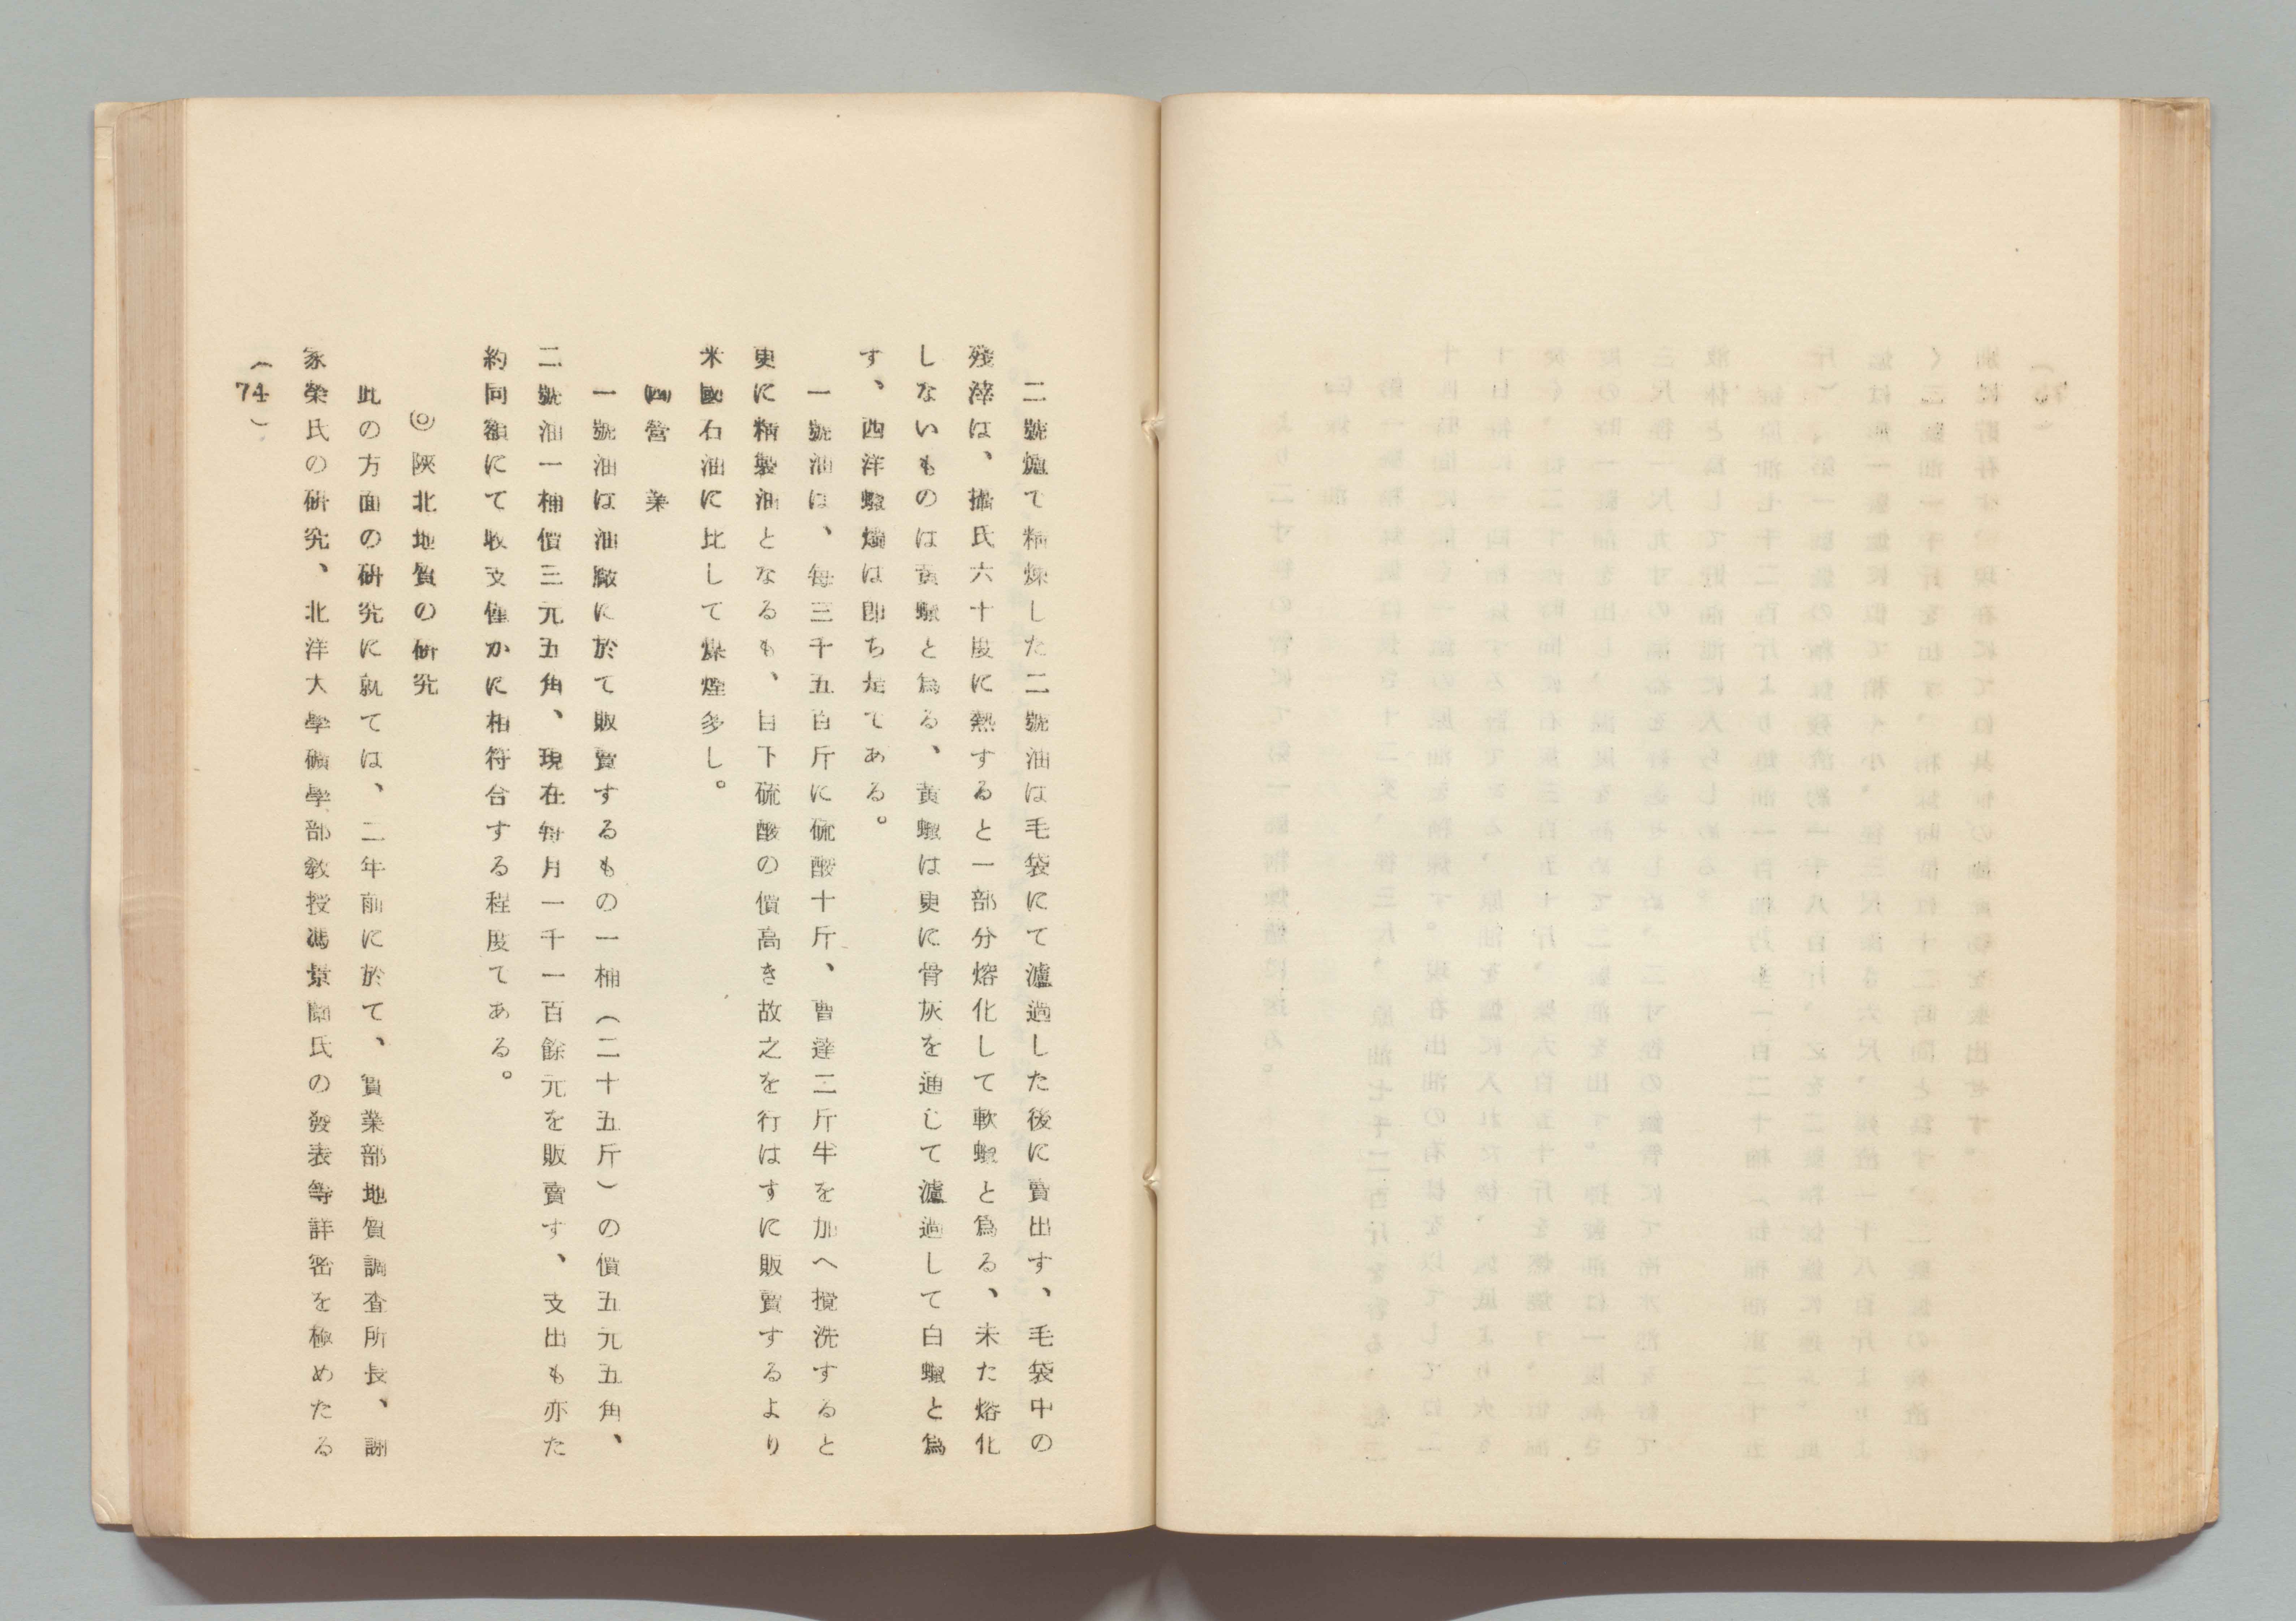 二號爐て精煉した二號油は毛袋にて濾過した後に賣出す、毛袋中の
殘滓は、攝氏六十度に熱すると一部分熔化して軟蠟と爲る、未た熔化
しないものは黃蠟と爲る、黃蠟は更に骨灰を通じて濾過して白蠟と爲
す、西洋蠟燭は卽ち是てある。
一號油は、每三千五百斤に硫酸十斤、曹達二斤半を加へ攪洗すると
更に精製油となるも、目下硫酸の價高き故之を行はすに販賣するより
米國石油に比して煤煙多し。
㈣營業
一號油は油廠に於て販賣するもの一桶（二十五斤）の價五元五角、
二號油一桶價三元五角、現在每月一千一百餘元を販賣す、支出も亦た
約同額にて收支僅かに相符合する程度てある。
◎陝北地質の研究
此の方面の研究に就ては、二年前に於て、實業部地質調查所長、謝
家榮氏の研究、北洋大學礦學部敎授馮景蘭氏の發表等詳密を極めたる
（74）